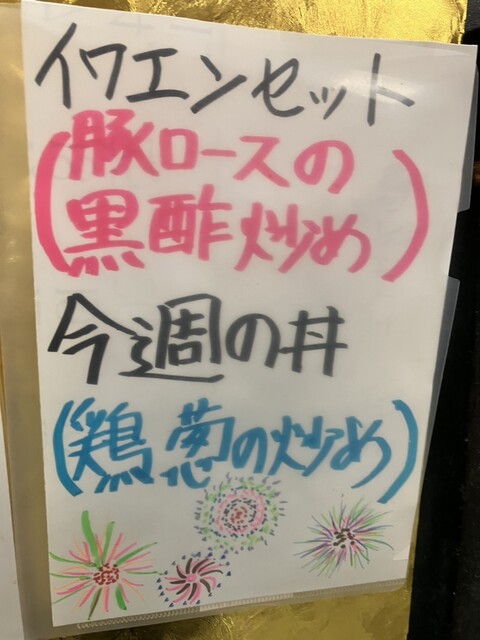 イワエンセット
(豚ロースの
黒酢炒め)
今週の丼
(鶏葱の炒め)